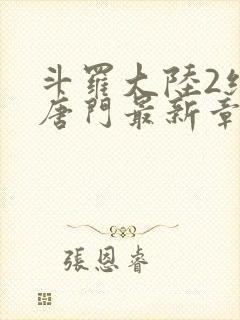 斗羅大陸2絕
唐門最新章
張恩睿